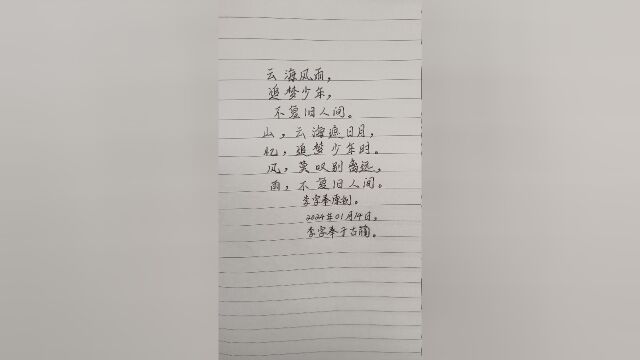 云海风雨，
追梦少年，
不复旧人间。
山，云海遮日月，
忆，追梦少年时。
风，莫叹别离远，
雨，不复旧人间。
李字奉原创。
2024年01月14日。
李字奉于古蔺。